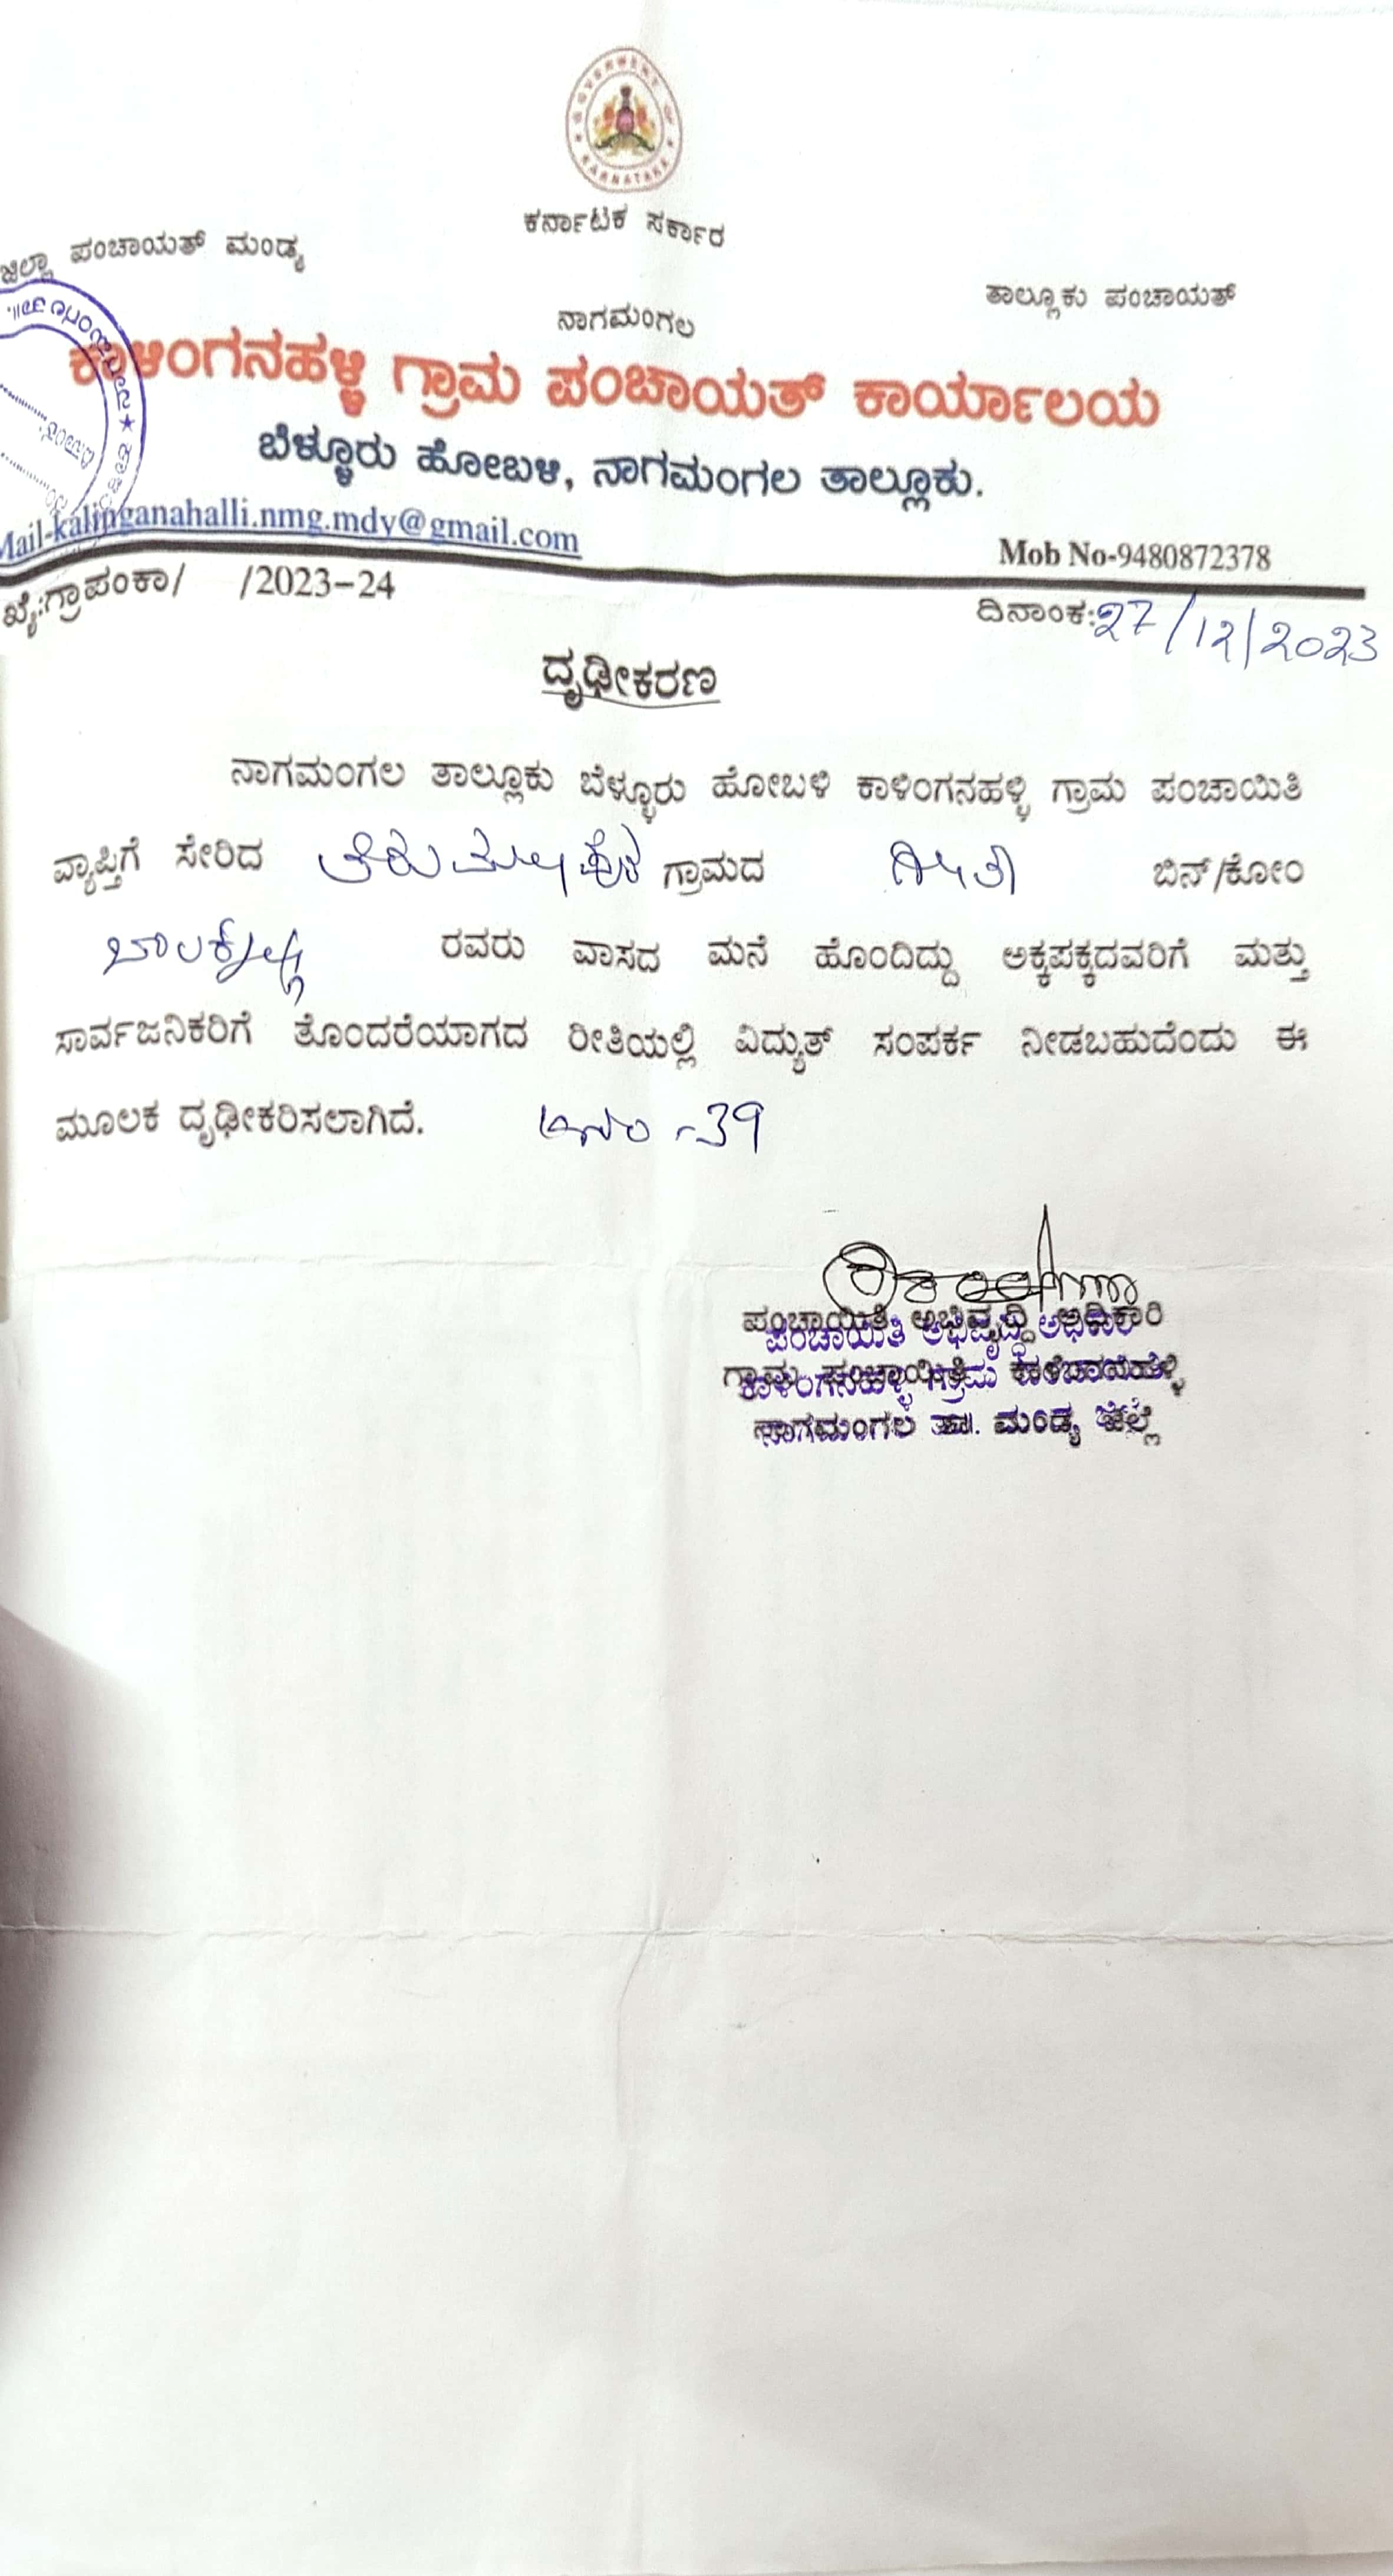 GOVERNMENT OF KARNATAKA
ಕರ್ನಾಟಕ ಸರ್ಕಾರ
ಜಿಲ್ಲಾ ಪಂಚಾಯತ್ ಮಂಡ್ಯ
ತಾಲ್ಲೂಕು ಪಂಚಾಯತ್
ನಾಗಮಂಗಲ
ಕಾಳಿಂಗನಹಳ್ಳಿ ಗ್ರಾಮ ಪಂಚಾಯತ್ ಕಾರ್ಯಾಲಯ
ಬೆಳ್ಳೂರು ಹೋಬಳಿ, ನಾಗಮಂಗಲ ತಾಲ್ಲೂಕು.
Mail-kalinganahalli.nmg.mdy@gmail.com
Mob No-9480872378
ಖ್ಯೆ:ಗ್ರಾಪಂಕಾ/ /2023-24
ದಿನಾಂಕ:27/12/2023
ದೃಢೀಕರಣ
ನಾಗಮಂಗಲ ತಾಲ್ಲೂಕು ಬೆಳ್ಳೂರು ಹೋಬಳಿ ಕಾಳಿಂಗನಹಳ್ಳಿ ಗ್ರಾಮ ಪಂಚಾಯಿತಿ
ವ್ಯಾಪ್ತಿಗೆ ಸೇರಿದ ಗ್ರಾಮದ ಬಿನ್/ಕೋಂ
ರವರು ವಾಸದ ಮನೆ ಹೊಂದಿದ್ದು ಅಕ್ಕಪಕ್ಕದವರಿಗೆ ಮತ್ತು
ಸಾರ್ವಜನಿಕರಿಗೆ ತೊಂದರೆಯಾಗದ ರೀತಿಯಲ್ಲಿ ವಿದ್ಯುತ್ ಸಂಪರ್ಕ ನೀಡಬಹುದೆಂದು ಈ
ಮೂಲಕ ದೃಢೀಕರಿಸಲಾಗಿದೆ. -39
ಪಂಚಾಯಿತಿ ಅಭಿವೃದ್ಧಿ ಅಧಿಕಾರಿ
ನಾಗಮಂಗಲ ತಾ. ಮಂಡ್ಯ ಜಿಲ್ಲೆ